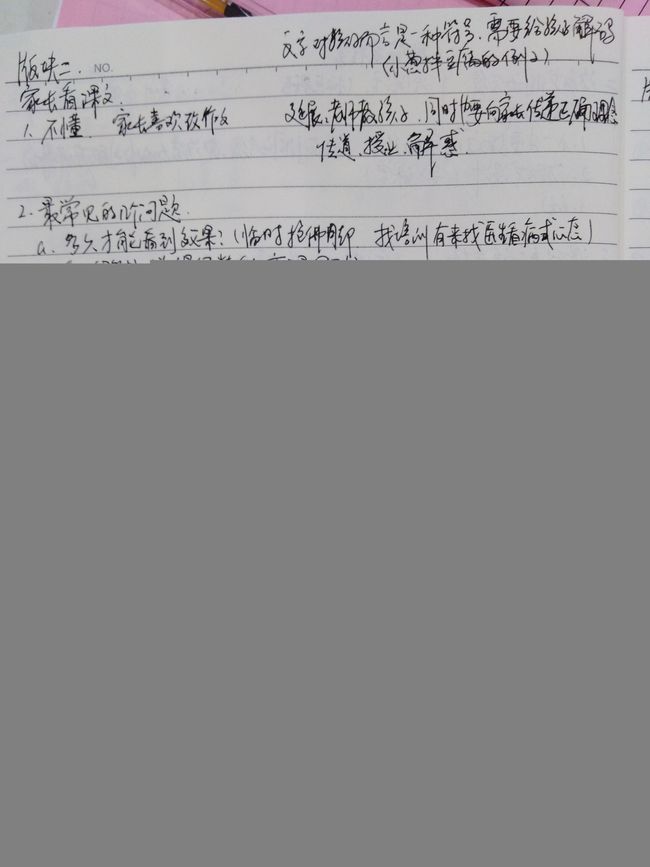 文字对孩子而言是一种符号、需要给孩子解码
(小葱拌豆腐的例子)
版块二. NO.
家长看课文.
1、不懂. 家长喜欢改作文
延展:老师教孩子、同时也要向家长传递正确理念
传道、授业、解惑.
2. 最常见的几个问题.
a、多久才能看到效果?(临时抱佛脚 找培训有来找医生看病式心态)